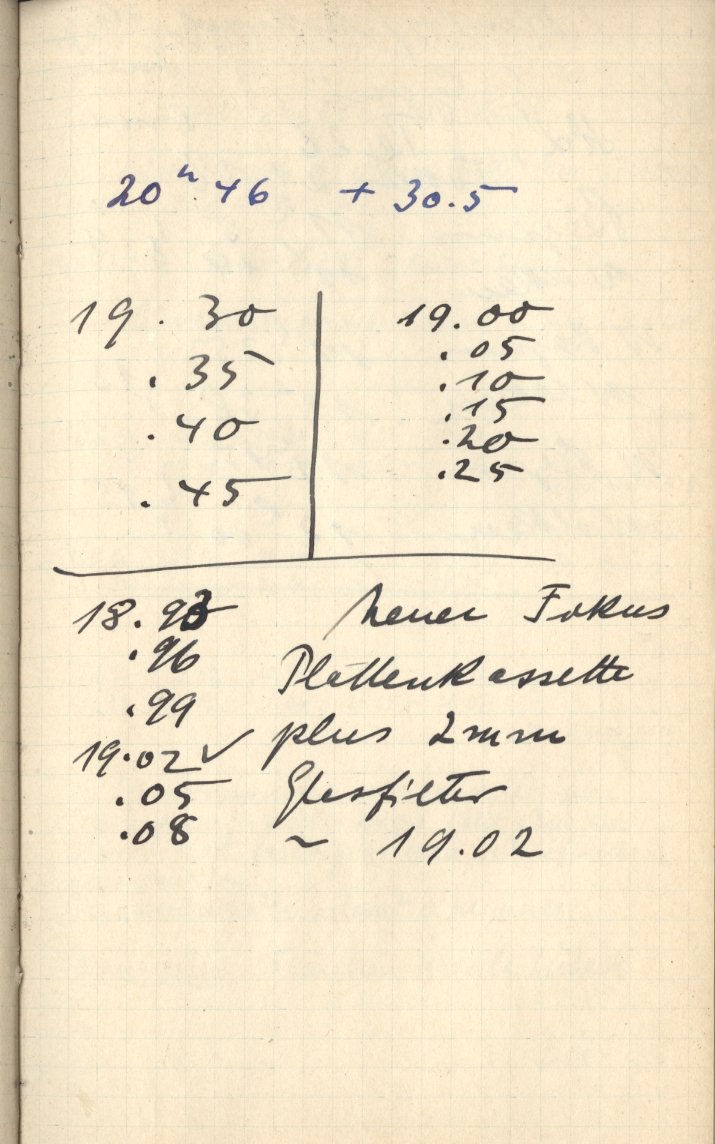 20ʰ 46 + 30.5
19.30
.35
.40
.45
19.00
.05
.10
.15
.20
.25
18.93
.96
.99
19.02 ✓
.05
.08
neuer Fokus
Plattenkassette
plus 2mm
Glasfilter
~ 19.02